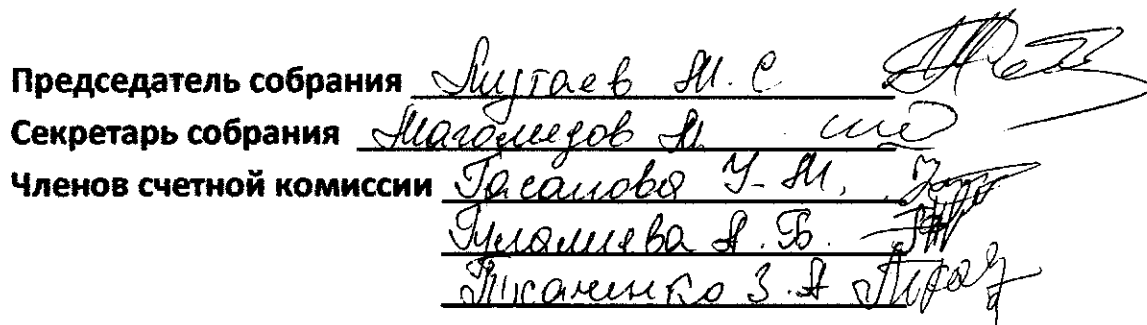 Председатель собрания Мутаев М. С
Секретарь собрания Магомедов М.
Членов счетной комиссии Гасанова У. М.
Гуламиева А. Б.
З. А